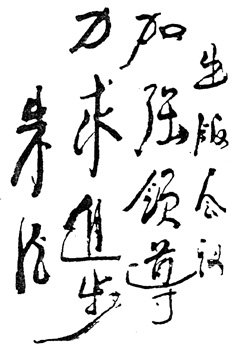 出版会议
加强领导
力求进步
朱德